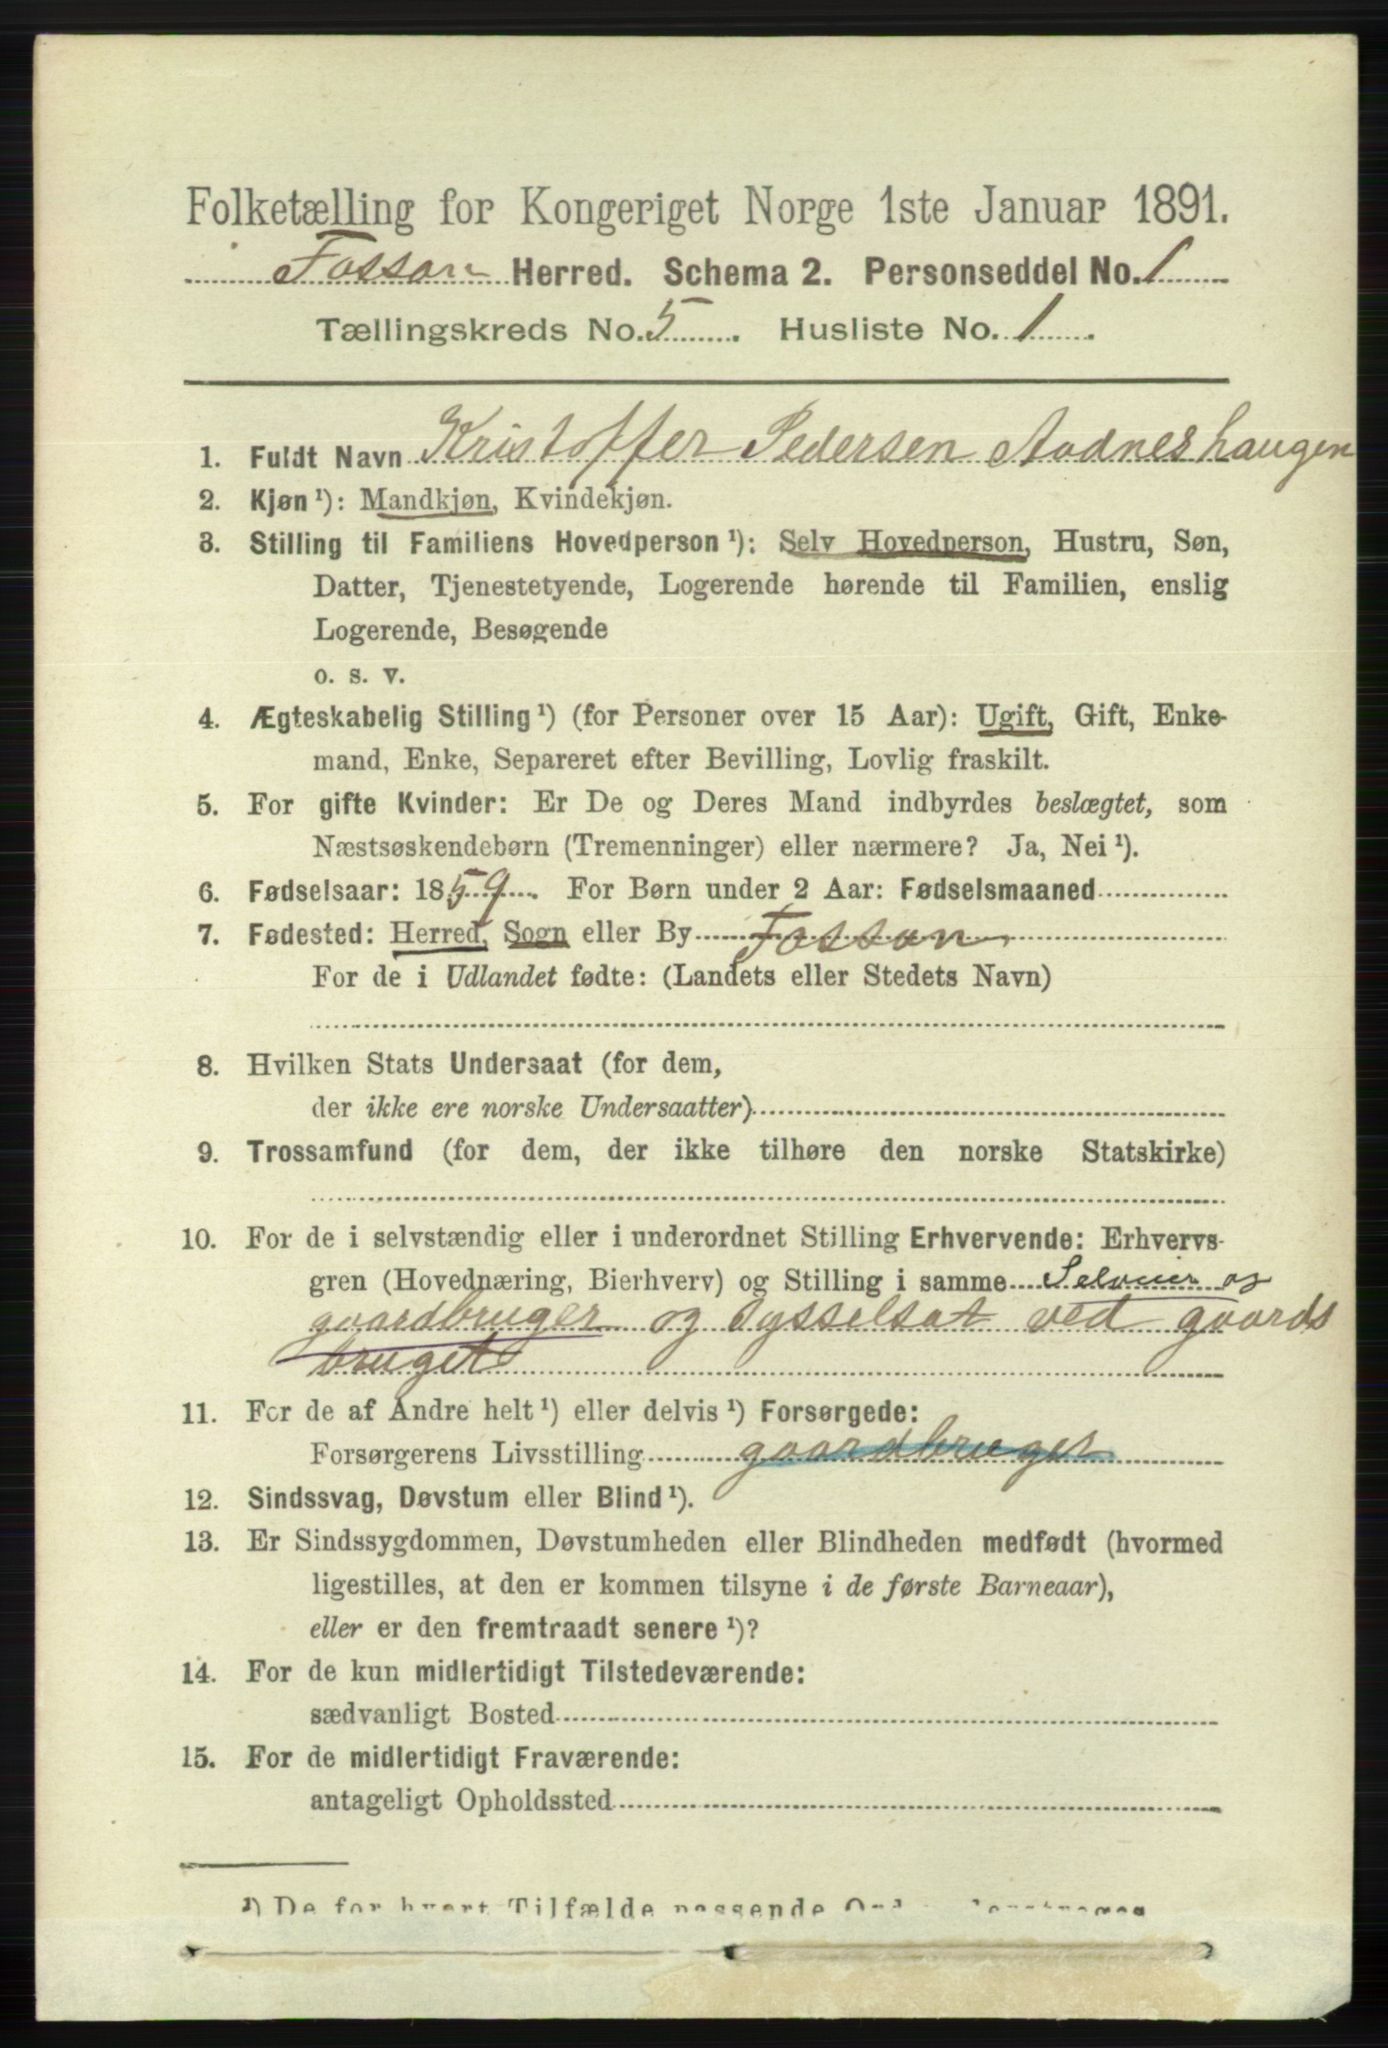 Folketælling for Kongeriget Norge 1ste Januar 1891.
Fossan Herred. Schema 2. Personseddel No. 1
Tællingskreds No. 5. Husliste No. 1.
1. Fuldt Navn Kristoffer Pedersen Aadneshaugen
2. Kjøn ¹): Mandkjøn, Kvindekjøn.
3. Stilling til Familiens Hovedperson ¹): Selv Hovedperson, Hustru, Søn,
Datter, Tjenestetyende, Logerende hørende til Familien, enslig
Logerende, Besøgende
o. s. v.
4. Ægteskabelig Stilling ¹) (for Personer over 15 Aar): Ugift, Gift, Enke-
mand, Enke, Separeret efter Bevilling, Lovlig fraskilt.
5. For gifte Kvinder: Er De og Deres Mand indbyrdes beslægtet, som
Næstsøskendebørn (Tremenninger) eller nærmere? Ja, Nei ¹).
6. Fødselsaar: 1859. For Børn under 2 Aar: Fødselsmaaned
7. Fødested: Herred, Sogn eller By Fossan
For de i Udlandet fødte: (Landets eller Stedets Navn)
8. Hvilken Stats Undersaat (for dem,
der ikke ere norske Undersaatter)
9. Trossamfund (for dem, der ikke tilhøre den norske Statskirke)
10. For de i selvstændig eller i underordnet Stilling Erhvervende: Erhvervs-
gren (Hovednæring, Bierhverv) og Stilling i samme Selveier og
gaardbruger og sysselsat ved gaards
bruget
11. For de af Andre helt ¹) eller delvis ¹) Forsørgede:
Forsørgerens Livsstilling gaardbruger
12. Sindssvag, Døvstum eller Blind ¹).
13. Er Sindssygdommen, Døvstumheden eller Blindheden medfødt (hvormed
ligestilles, at den er kommen tilsyne i de første Barneaar),
eller er den fremtraadt senere ¹)?
14. For de kun midlertidigt Tilstedeværende:
sædvanligt Bosted
15. For de midlertidigt Fraværende:
antageligt Opholdssted
¹) De for hvert Tilfælde passende